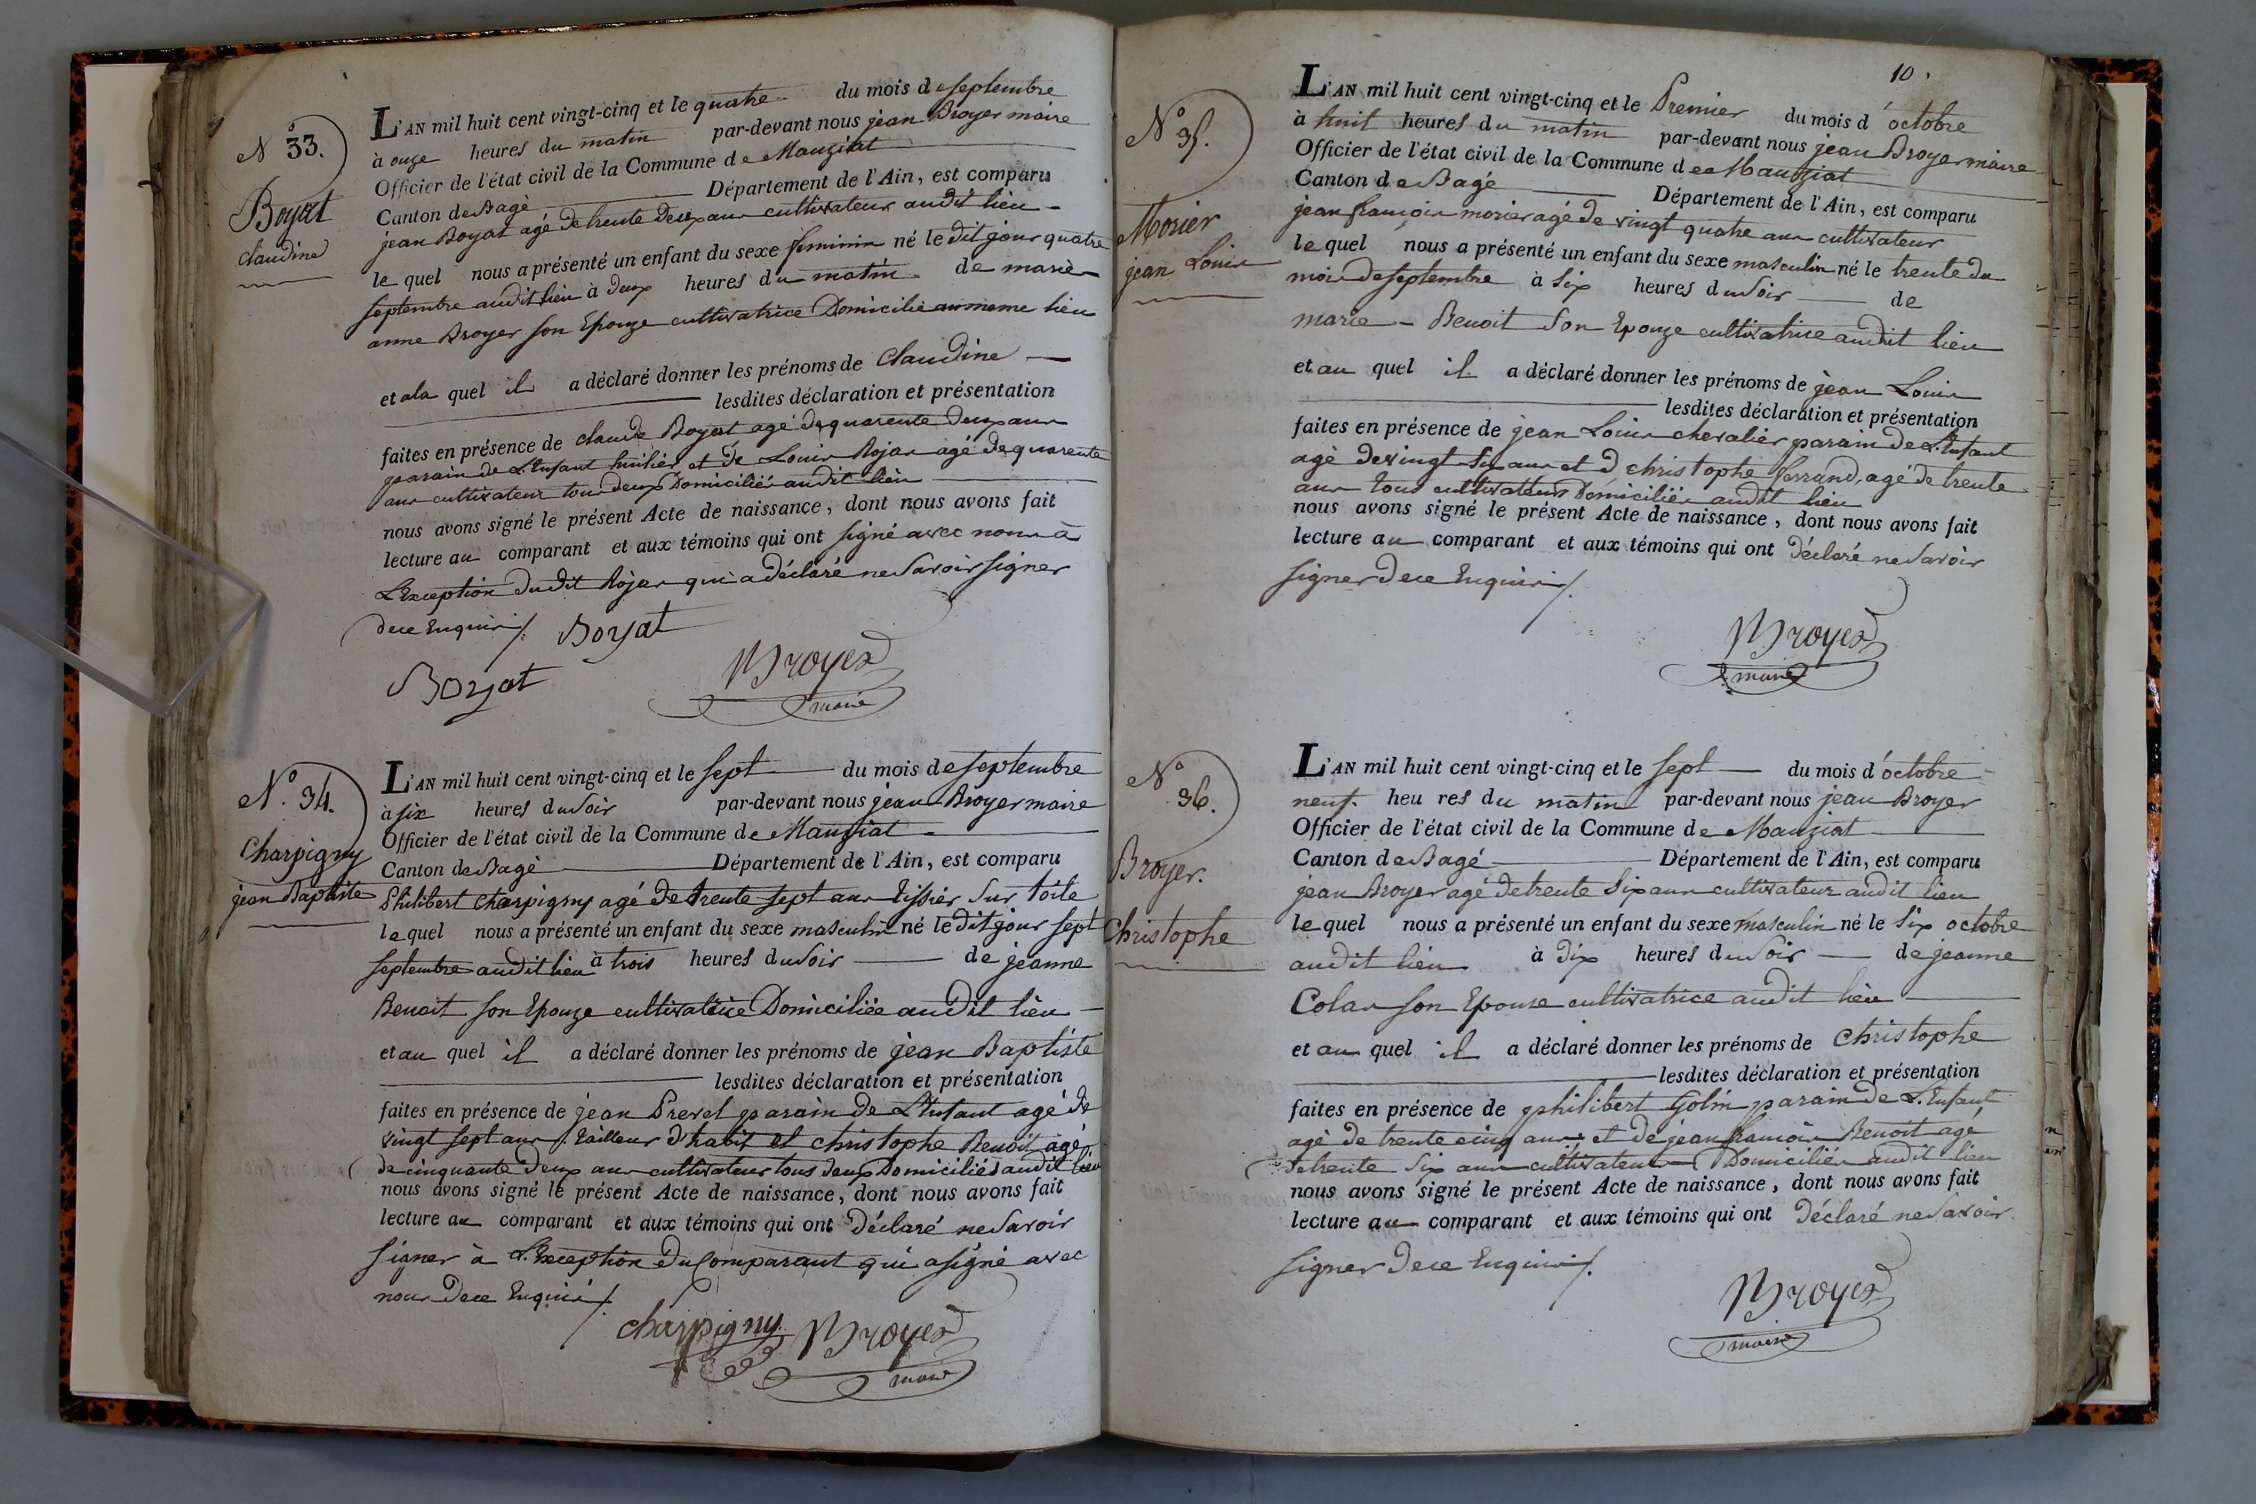 N° 33.
Boyat
claudine
L'AN mil huit cent vingt-cinq et le quatre du mois de septembre
à onze heures du matin par-devant nous jean Broyer maire
Officier de l'état civil de la Commune de Manziat
Canton de Bagé Département de l'Ain, est comparu
jean Boyat agé de trente Deux ans cultivateur audit lieu
le quel nous a présenté un enfant du sexe feminin né le dit jour quatre
septembre audit lieu à deux heures du matin de marie
anne Broyer son Epouze cultivatrice Domicilié au meme lieu
et a la quel il a déclaré donner les prénoms de Claudine
lesdites déclaration et présentation
faites en présence de claude Boyat agé de quarente deux ans
parain de L'Enfant huilier et de Louis Rojas agé de quarente
ans cultivateur tous deux Domiciliés audit lieu
nous avons signé le présent Acte de naissance, dont nous avons fait
lecture au comparant et aux témoins qui ont signé avec nous à
L'Exception dudit Rojas qui a déclaré ne Savoir signer
de ce Enquis /. Boyat
Boyat Broyer
maire
N° 34.
Charpigny
jean Baptiste
L'AN mil huit cent vingt-cinq et le sept du mois de septembre
à six heures du Soir par-devant nous jean Broyer maire
Officier de l'état civil de la Commune de Manziat
Canton de Bagé Département de l'Ain, est comparu
Philibert Charpigny agé de trente sept ans tissier Sur toile
le quel nous a présenté un enfant du sexe masculin né le dit jour sept
septembre audit lieu à trois heures du Soir de jeanne
Benoit son Epouze cultivatrice Domiciliée audit lieu
et au quel il a déclaré donner les prénoms de jean Baptiste
lesdites déclaration et présentation
faites en présence de jean Prevel parain de L'Enfant agé de
vingt sept ans tailleur d'habit et christophe Benoit agé
de cinquante deux ans cultivateur tous deux Domiciliés audit lieu
nous avons signé le présent Acte de naissance, dont nous avons fait
lecture au comparant et aux témoins qui ont Déclaré ne Savoir
signer à L'Exception du Comparant qui a signé avec
nous de ce Enquis /.
charpigny Broyer
maire
10.
N° 35.
Morier
jean Louis
L'AN mil huit cent vingt-cinq et le Premier du mois d'octobre
à huit heures du matin par-devant nous jean Broyer maire
Officier de l'état civil de la Commune de Manziat
Canton de Bagé Département de l'Ain, est comparu
jean françois morier agé de vingt quatre ans cultivateur
le quel nous a présenté un enfant du sexe masculin né le trente du
mois de septembre à six heures du Soir de
marie Benoit Son Epouze cultivatrice audit lieu
et au quel il a déclaré donner les prénoms de jean Louis
lesdites déclaration et présentation
faites en présence de jean Louis chevalier parain de L'Enfant
agé de vingt Six ans et d christophe ferrand, agé de trente
ans tous cultivateurs Domiciliés audit lieu
nous avons signé le présent Acte de naissance, dont nous avons fait
lecture au comparant et aux témoins qui ont Déclaré ne Savoir
signer de ce Enquis /.
Broyer
maire
N° 36.
Broyer.
Christophe
L'AN mil huit cent vingt-cinq et le sept du mois d'octobre
neuf. heu res du matin par-devant nous jean Broyer
Officier de l'état civil de la Commune de Manziat
Canton de Bagé Département de l'Ain, est comparu
jean Broyer agé de trente Six ans cultivateur audit lieu
le quel nous a présenté un enfant du sexe masculin né le Six octobre
audit lieu à Dix heures du Soir de jeanne
Colas son Epouse cultivatrice audit lieu
et au quel il a déclaré donner les prénoms de Christophe
lesdites déclaration et présentation
faites en présence de philibert Golin parain de L'Enfant
agé de trente cinq ans et de jean françois Benoit agé
de trente Six ans cultivateurs Domiciliés audit lieu
nous avons signé le présent Acte de naissance, dont nous avons fait
lecture au comparant et aux témoins qui ont Déclaré ne Savoir
signer de ce Enquis /.
Broyer
maire